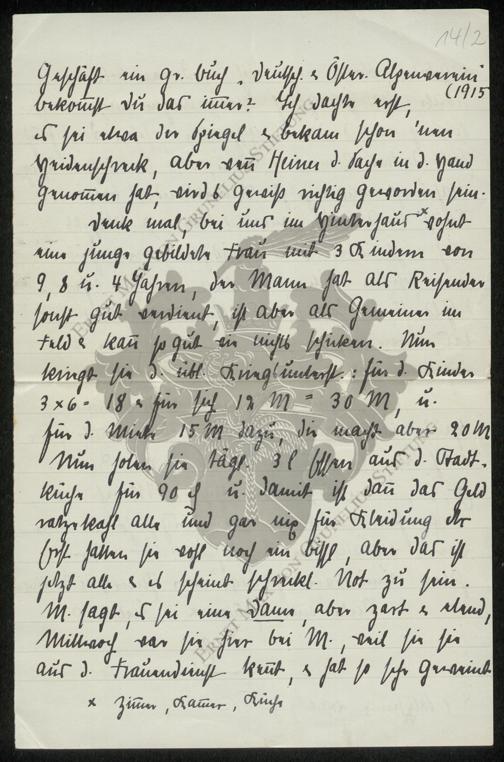 14/2
Geschäft ein gr. Buch „Deutsch. & Öster. Alpenverein“
(1915
bekommst du das immer? Ich dachte erst,
es sei etwa der Spiegel & bekam schon 'nen
Heidenschreck, aber wenn Heiner d. Sache in d. Hand
genommen hat, wird's gewiß richtig geworden sein.
Denk mal, bei uns im Hinterhaus x wohnt
eine junge gebildete Frau mit 3 Kindern von
9, 8 u. 4 Jahren, der Mann hat als Reisender
sonst gut verdient, ist aber als Gemeiner im
Feld & kann so gut wie nichts schicken. Nun
kriegt sie d. übl. Kriegsunterst.: für d. Kinder
3 x 6 = 18 & für sich 12 M = 30 M, u.
für d. Miete 15 M dazu, die macht aber 20 M
Nun holen sie tägl. 3 l Essen aus d. Stadt-
küche für 90 u. damit ist dann das Geld
ratzekahl alle und gar nix für Kleidung etc
Erst hatten sie wohl noch ein bissl, aber das ist
jetzt alle & es scheint schreckl. Not zu sein.
M. sagt, es sei eine Dame, aber zart & elend,
Mittwoch war sie hier bei M., weil sie sie
aus d. Frauendienst kennt, & hat so sehr geweint
x Zimmer, Kammer, Küche
ERNST MAX VON GRUNELIUS-STIFTUNG
ERNST MAX VON GRUNELIUS STIFTUNG